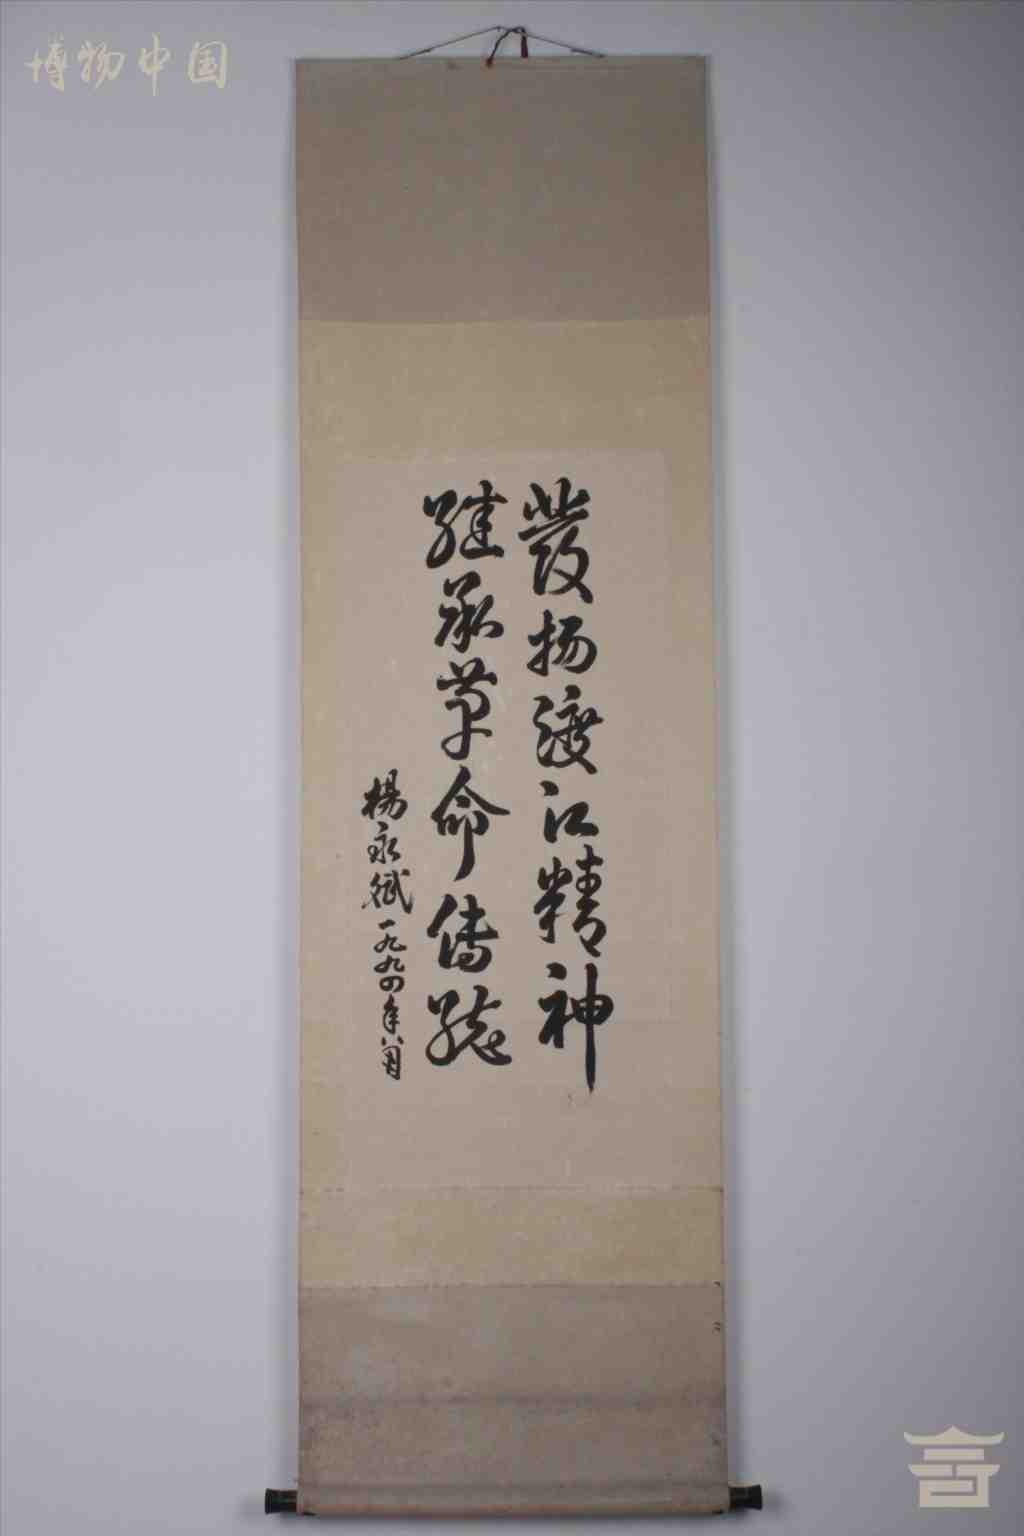 博物中国
發扬渡江精神
继承革命传统
楊永斌
一九九四年八月